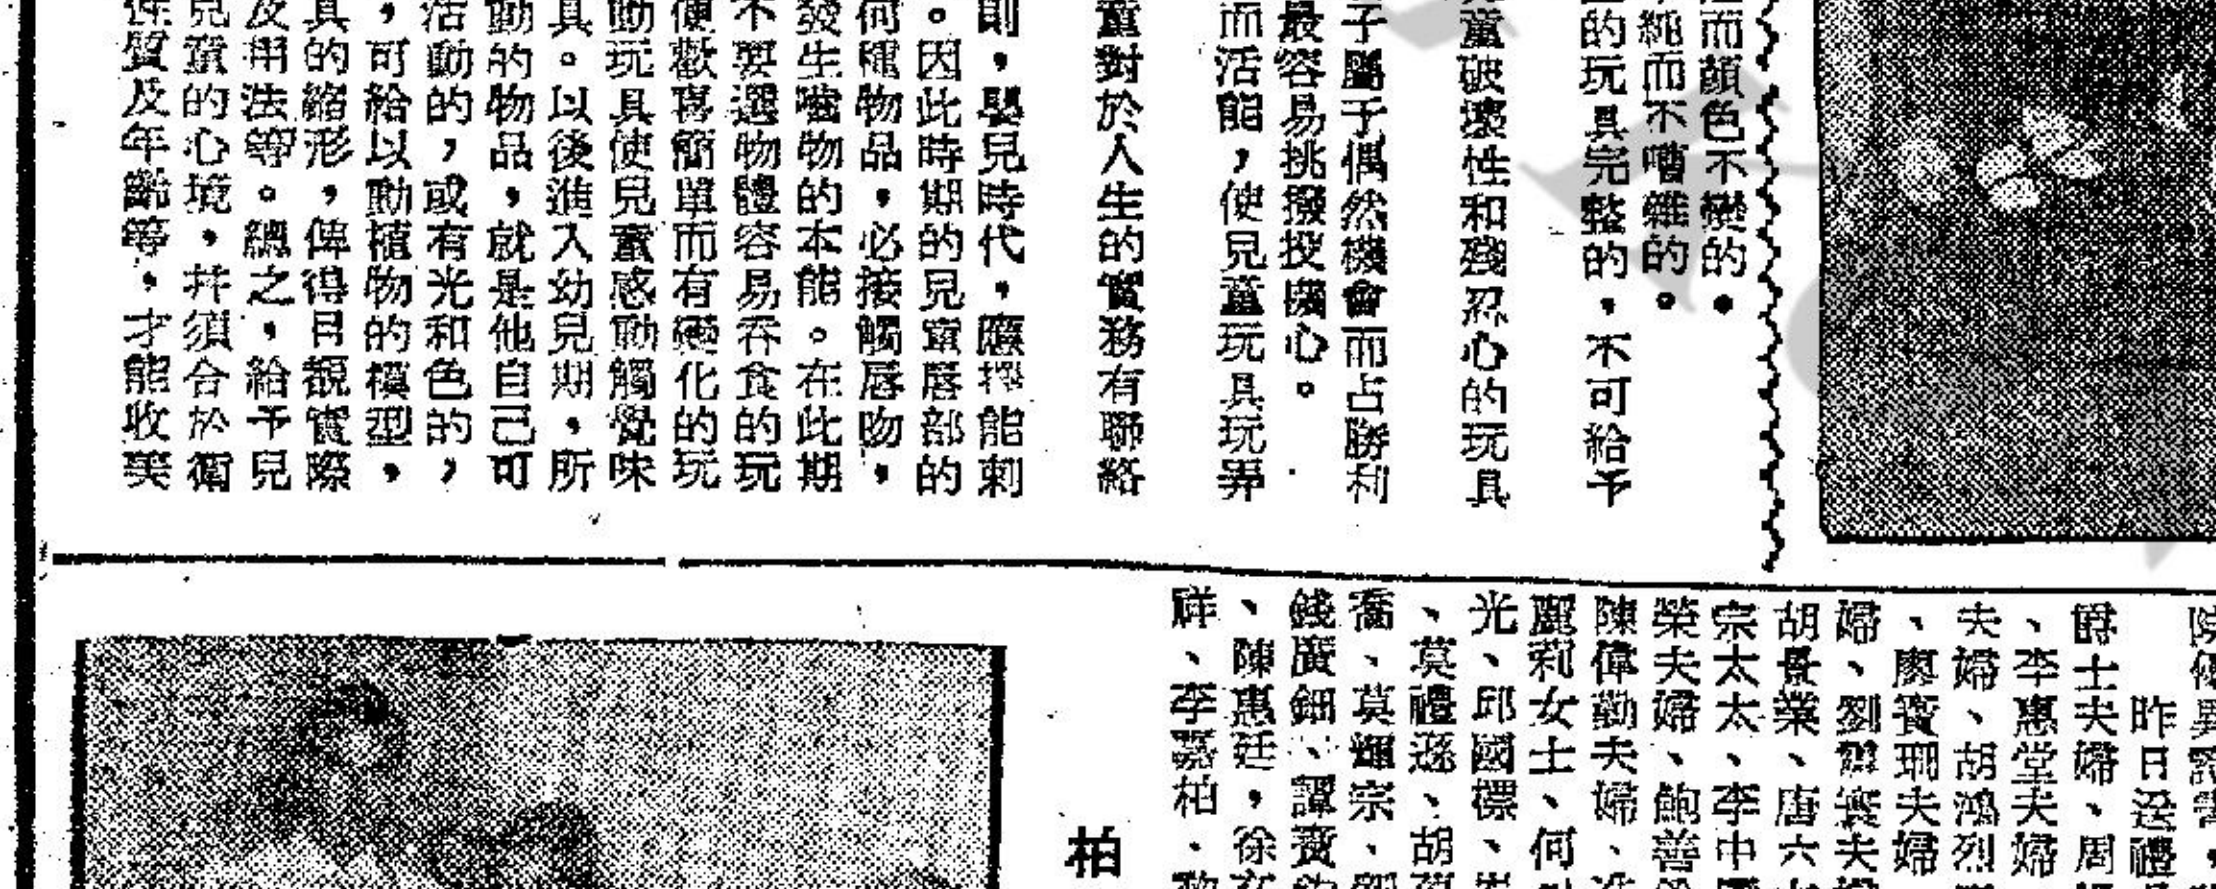 而顏色不變的。
純而不嘈雜的。
的玩具完整的，不可給予
童破壞性和殘忍心的玩具
子屬于偶然機會而占勝利
最容易挑撥投機心。
而活能，使兒童玩具玩弄
童對於人生的實務有聯絡
則，嬰兒時代，應擇能刺
。因此時期的兒童唇部的
何種物品，必接觸唇吻，
發生嚐物的本能。在此期
不要選物體容易吞食的玩
便歡喜簡單而有變化的玩
動玩具使兒童感動觸覺味
具。以後進入幼兒期，所
動的物品，就是他自己可
活動的，或有光和色的，
，可給以動植物的模型，
具的縮形，俾得目覩實際
及用法等。總之，給予兒
兒童的心境，并須合於衛
性質及年齡等，才能收美
昨日送禮
爵士夫婦、周
、李惠堂夫婦
夫婦、胡鴻烈
、廖寶珊夫婦
婦、劉
胡景業、唐六
宗太太、李中
榮夫婦、鮑善
陳偉勤夫婦、
麗莉女士、何
光、邱國標、
、莫禮遜、胡
喬、莫輝宗、
錢廣鈿、譚寶
、陳惠廷，徐
祥、李嘉柏、
柏